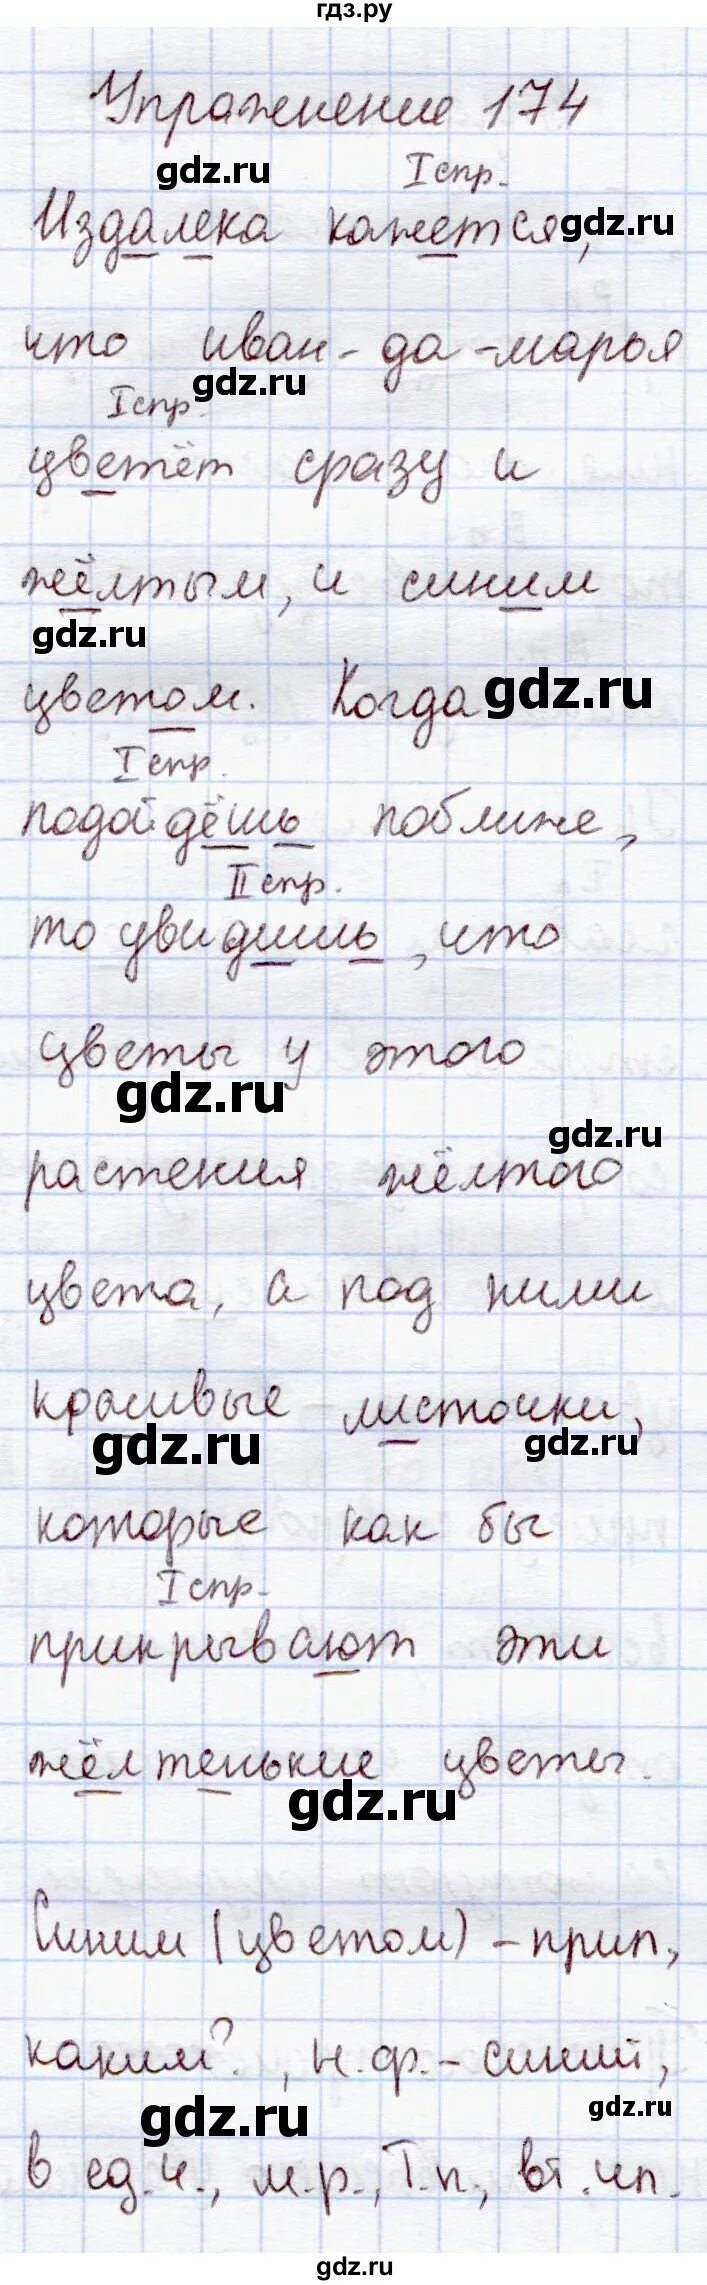 гдз.ру
Упражнение 174
gdz.ru
I спр.
Издалека кажется,
gdz.ru
что иван-да-марья
I спр.
gdz.ru
цветёт сразу и
gdz.ru
жёлтым, и синим
gdz.ru
цветом. Когда
gdz.ru
I спр.
подойдёшь поближе,
II спр.
то увидишь, что
цветы у этого
gdz.ru
gdz.ru
растения жёлтого
цвета, а под ними
красивые листочки,
gdz.ru
gdz.ru
которые как бы
I спр.
прикрывают эти
жёлтенькие цветы.
gdz.ru
Синим (цветом) - прил,
каким?, н.ф.- синий,
gdz.ru
gdz.ru
в ед.ч., м.р., Т.п., вт.чл.
gdz.ru